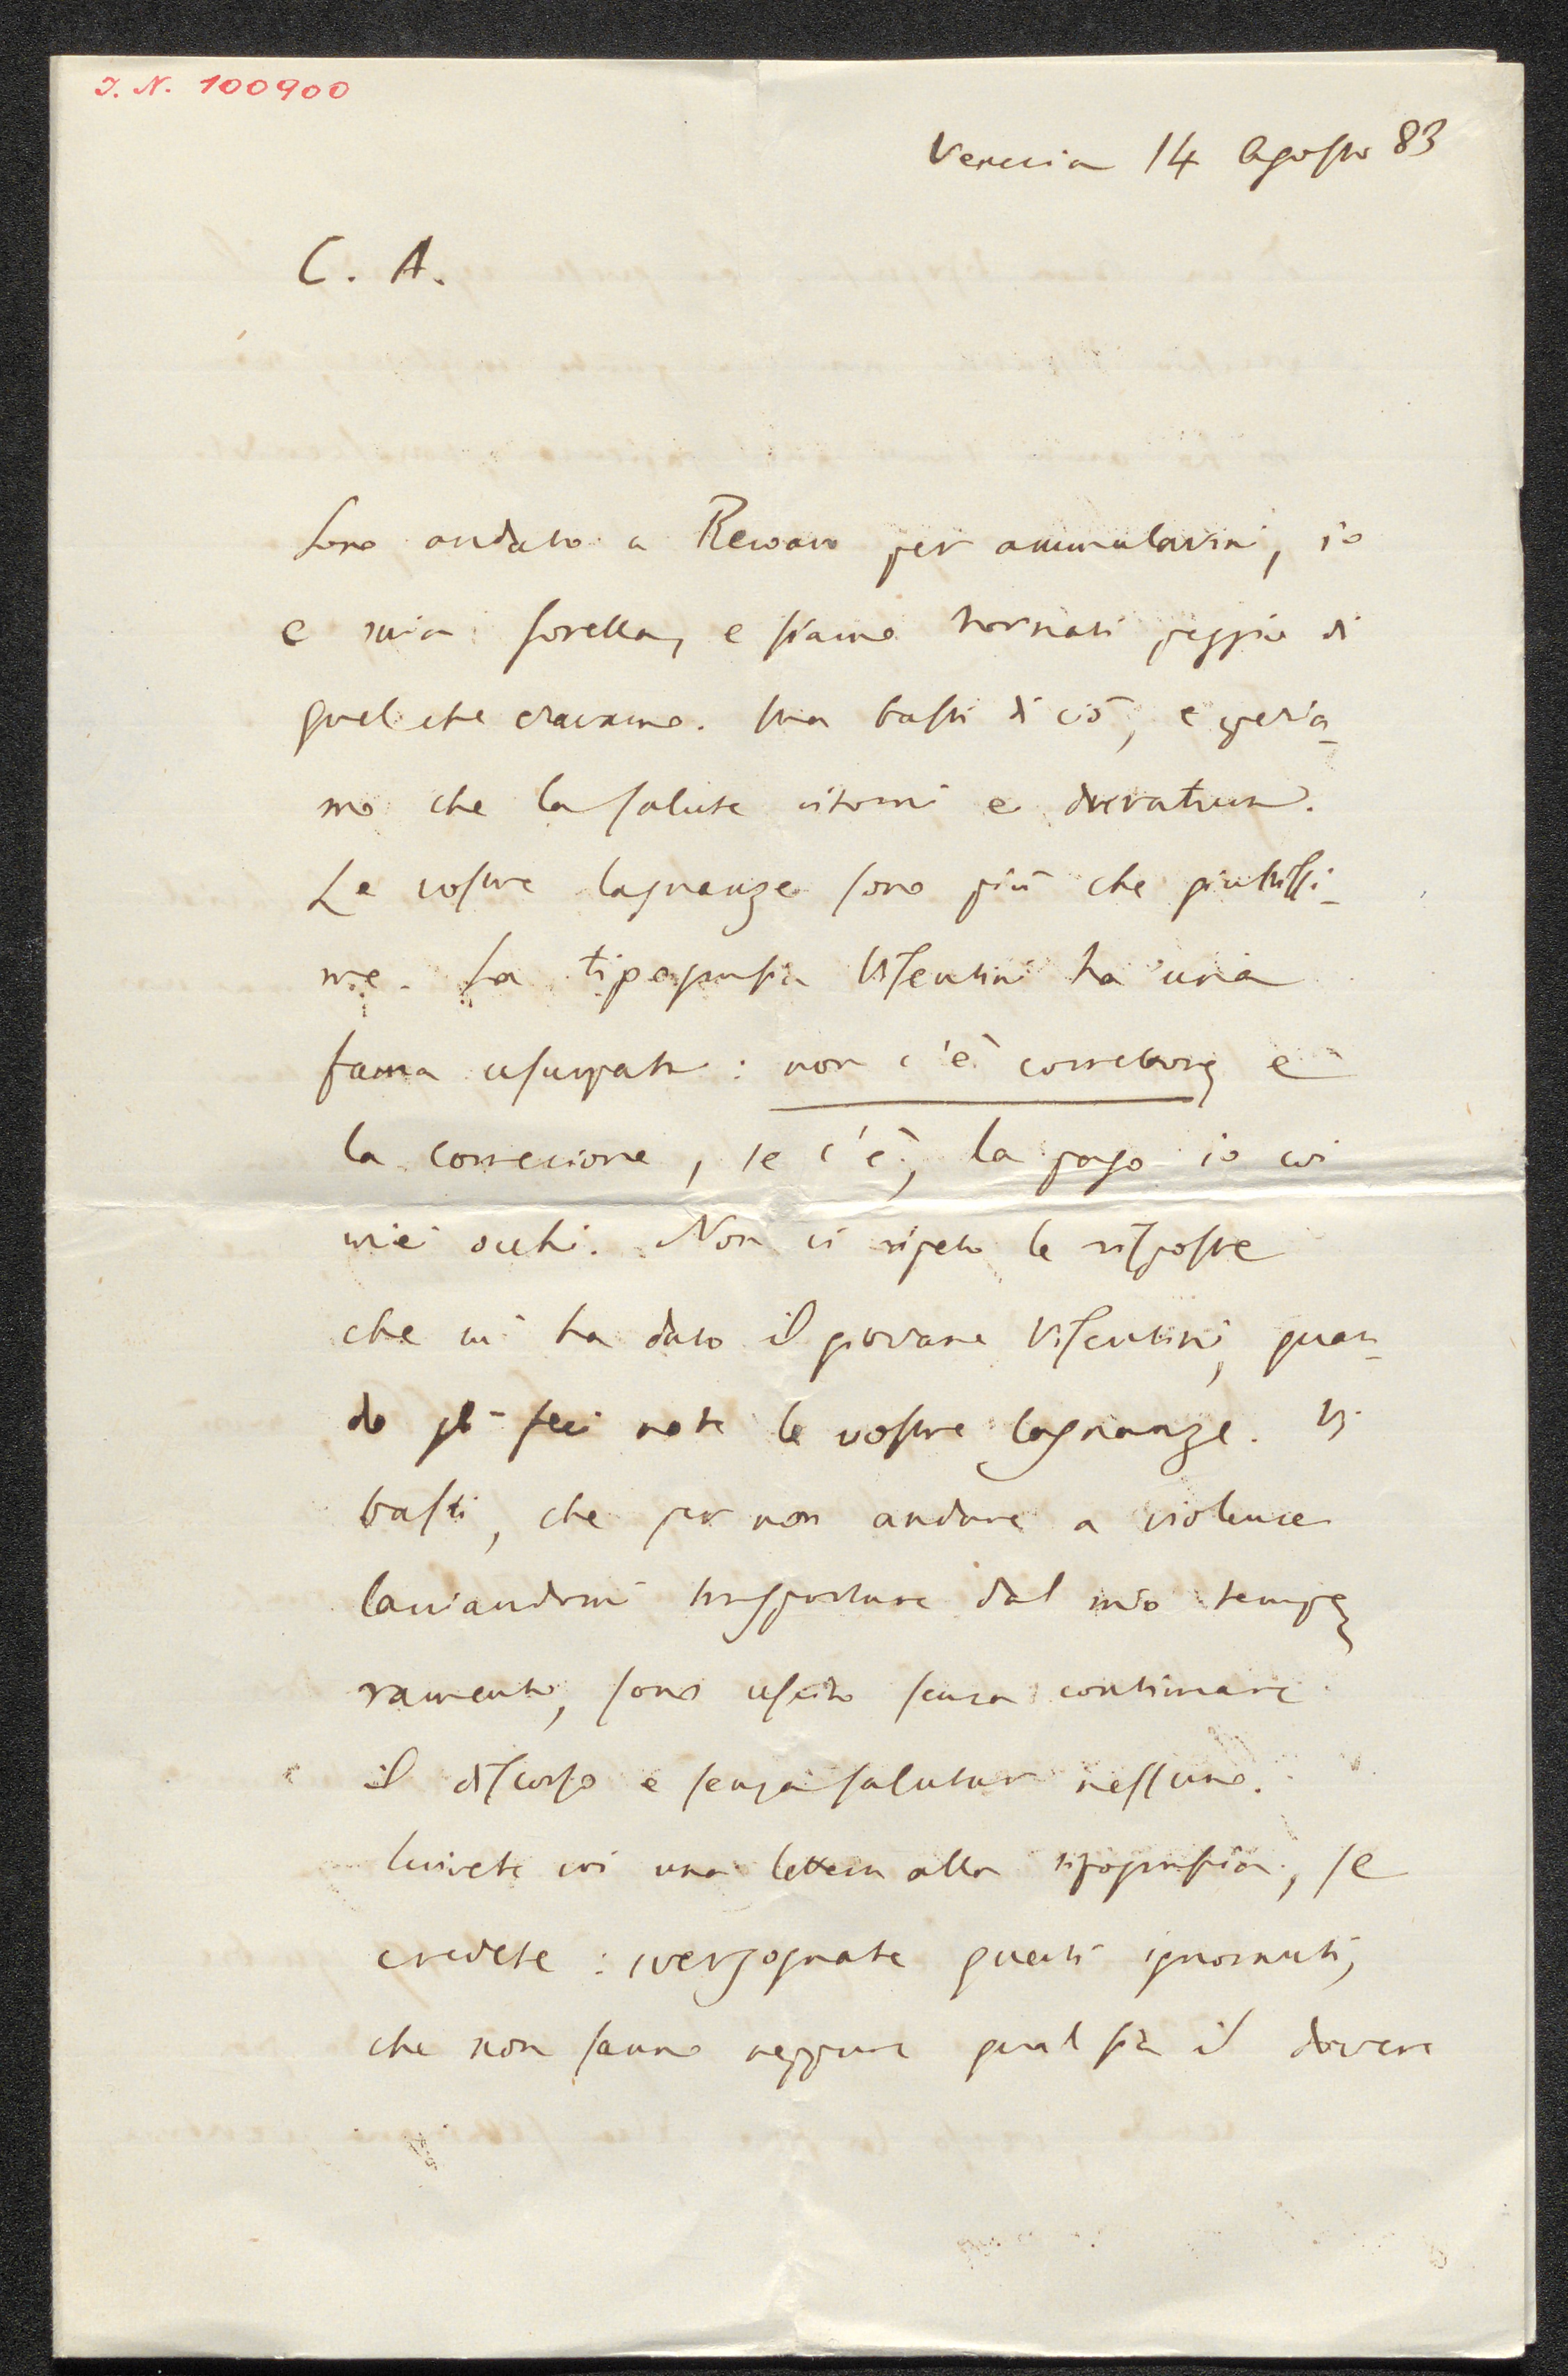 I. N. 100900
Venecia 14 Agosto 83
C. A.
Sono andato a Recoaro per ammalarmi, io
e mia sorella, e siamo tornati peggio di
quel che eravamo. Ma basti di ciò, e speria-
mo che la salute ritorni e duratura.
Le vostre lagnanze sono più che giustissi-
me. La tipografia Visentini ha una
fama usurpata: non c'è correttore, e
la correcione, se c'è, la pago io coi
miei occhi. Non vi ripeto le risposte
che mi ha dato il giovane Visentini, quan-
do gli feci note le vostre lagnanze. Vi
basti, che per non andare a violence
lasciandomi trasportare dal mio tempe-
ramento, sono uscito senza continuare
il discorso e senza salutar nessuno.
Scrivete voi una lettera alla tipografia, se
credete: svergognate questi ignoranti,
che non sanno neppure qual sia il dovere